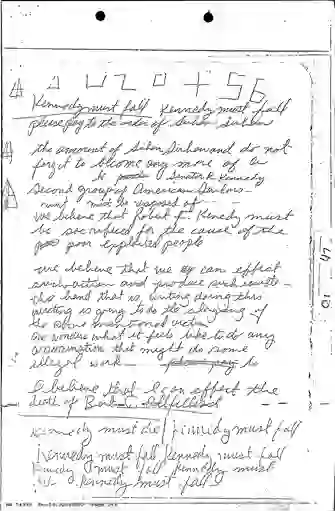 Kennedy must fall Kennedy must fall
please pay to the order of Sirhan Sirhan
the amount of Sirhan Sirhan and do not
forget to become any more of a
Senator R. Kennedy
Second group of American Sailors
must must be disposed of
We believe that Robert F. Kennedy must
be sacrificed for the cause of the
poor exploited people
we believe that we can effect
such action and produce such results -
the hand that is writing doing this
writing is going to do the slaying of
the above mentioned victim
One wonders what it feels like to do any
assassination that might do some
illegal work - to
I believe that I can effect the
death of
Kennedy must die Kennedy must fall
Kennedy must fall Kennedy must fall
Kennedy must fall Kennedy must
Kennedy must fall